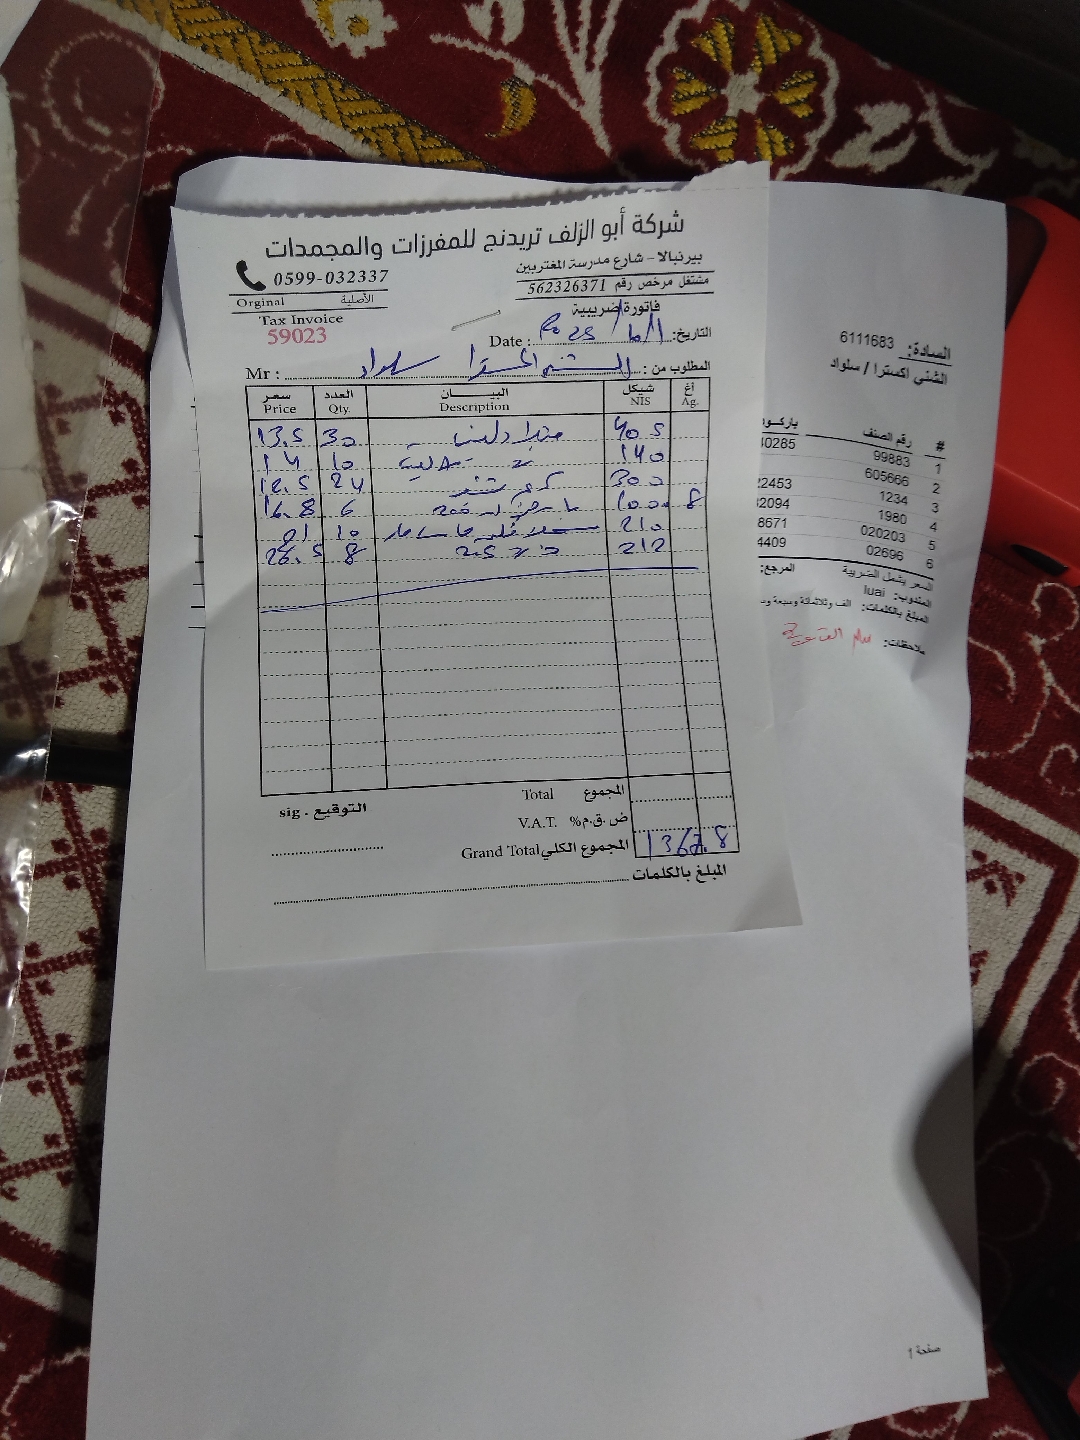 شركة أبو الزلف تريدنج للمفرزات والمجمدات
بيرنبالا - شارع مدرسة المغتربين
0599-032337
مشتغل مرخص رقم 562326371
Orginal الأصلية
فاتورة ضريبية
Tax Invoice
59023
التاريخ: Date : 2025
المطلوب من : سلواد Mr :
سعر العدد البيــــــان شيكل أغ
Price Qty. Description NIS Ag.
13.5 30 405
14 10 140
12.5 24 كريم 300
16.8 6 100 8
21 10 210
26.5 8 212
المجموع Total
ض.ق.م% V.A.T.
المجموع الكلي Grand Total 1367.8
التوقيع . sig
المبلغ بالكلمات
السادة: 6111683
الشني اكسترا / سلواد
# رقم الصنف باركـو
1 99883 0285
2 605666
3 1234 22453
4 1980 2094
5 020203 8671
6 02696 4409
السعر يشمل الضريبة المرجع:
المندوب: luai
المبلغ بالكلمات: الف وثلاثمائة وسبعة وس
ملاحظات:
صفحة 1